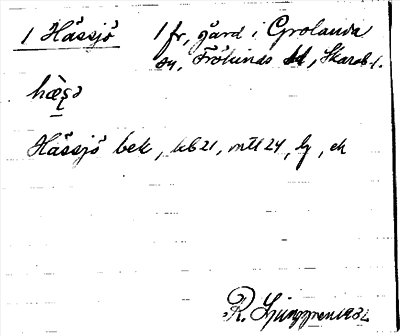 1 Hässjö 1 fr, gård i Grolanda
sn, Frökinds hd, Skarab. l.
Hässjö bek, kb 21, mtl 24, lj, ek
R. Ljunggren 1932